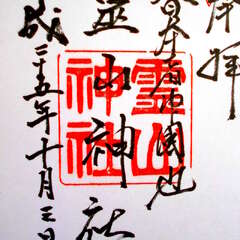 奉拝
霊山神社
成二十五年十月三日
霊山
神社